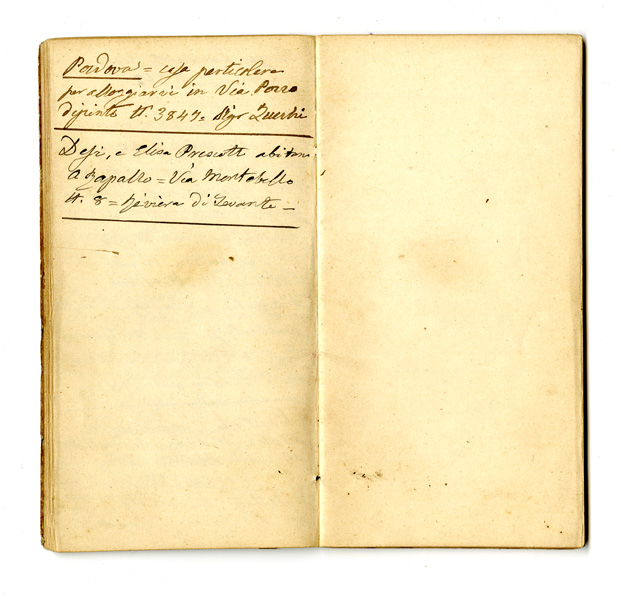 Padova = casa particolare
per alloggiarvi in Via Pozzo
dipinto N. 3847= Sigr
Desi, e Elisa Prescott abitano
a Rapallo = Via Montebello
N. 8 = Riviera di Levante —